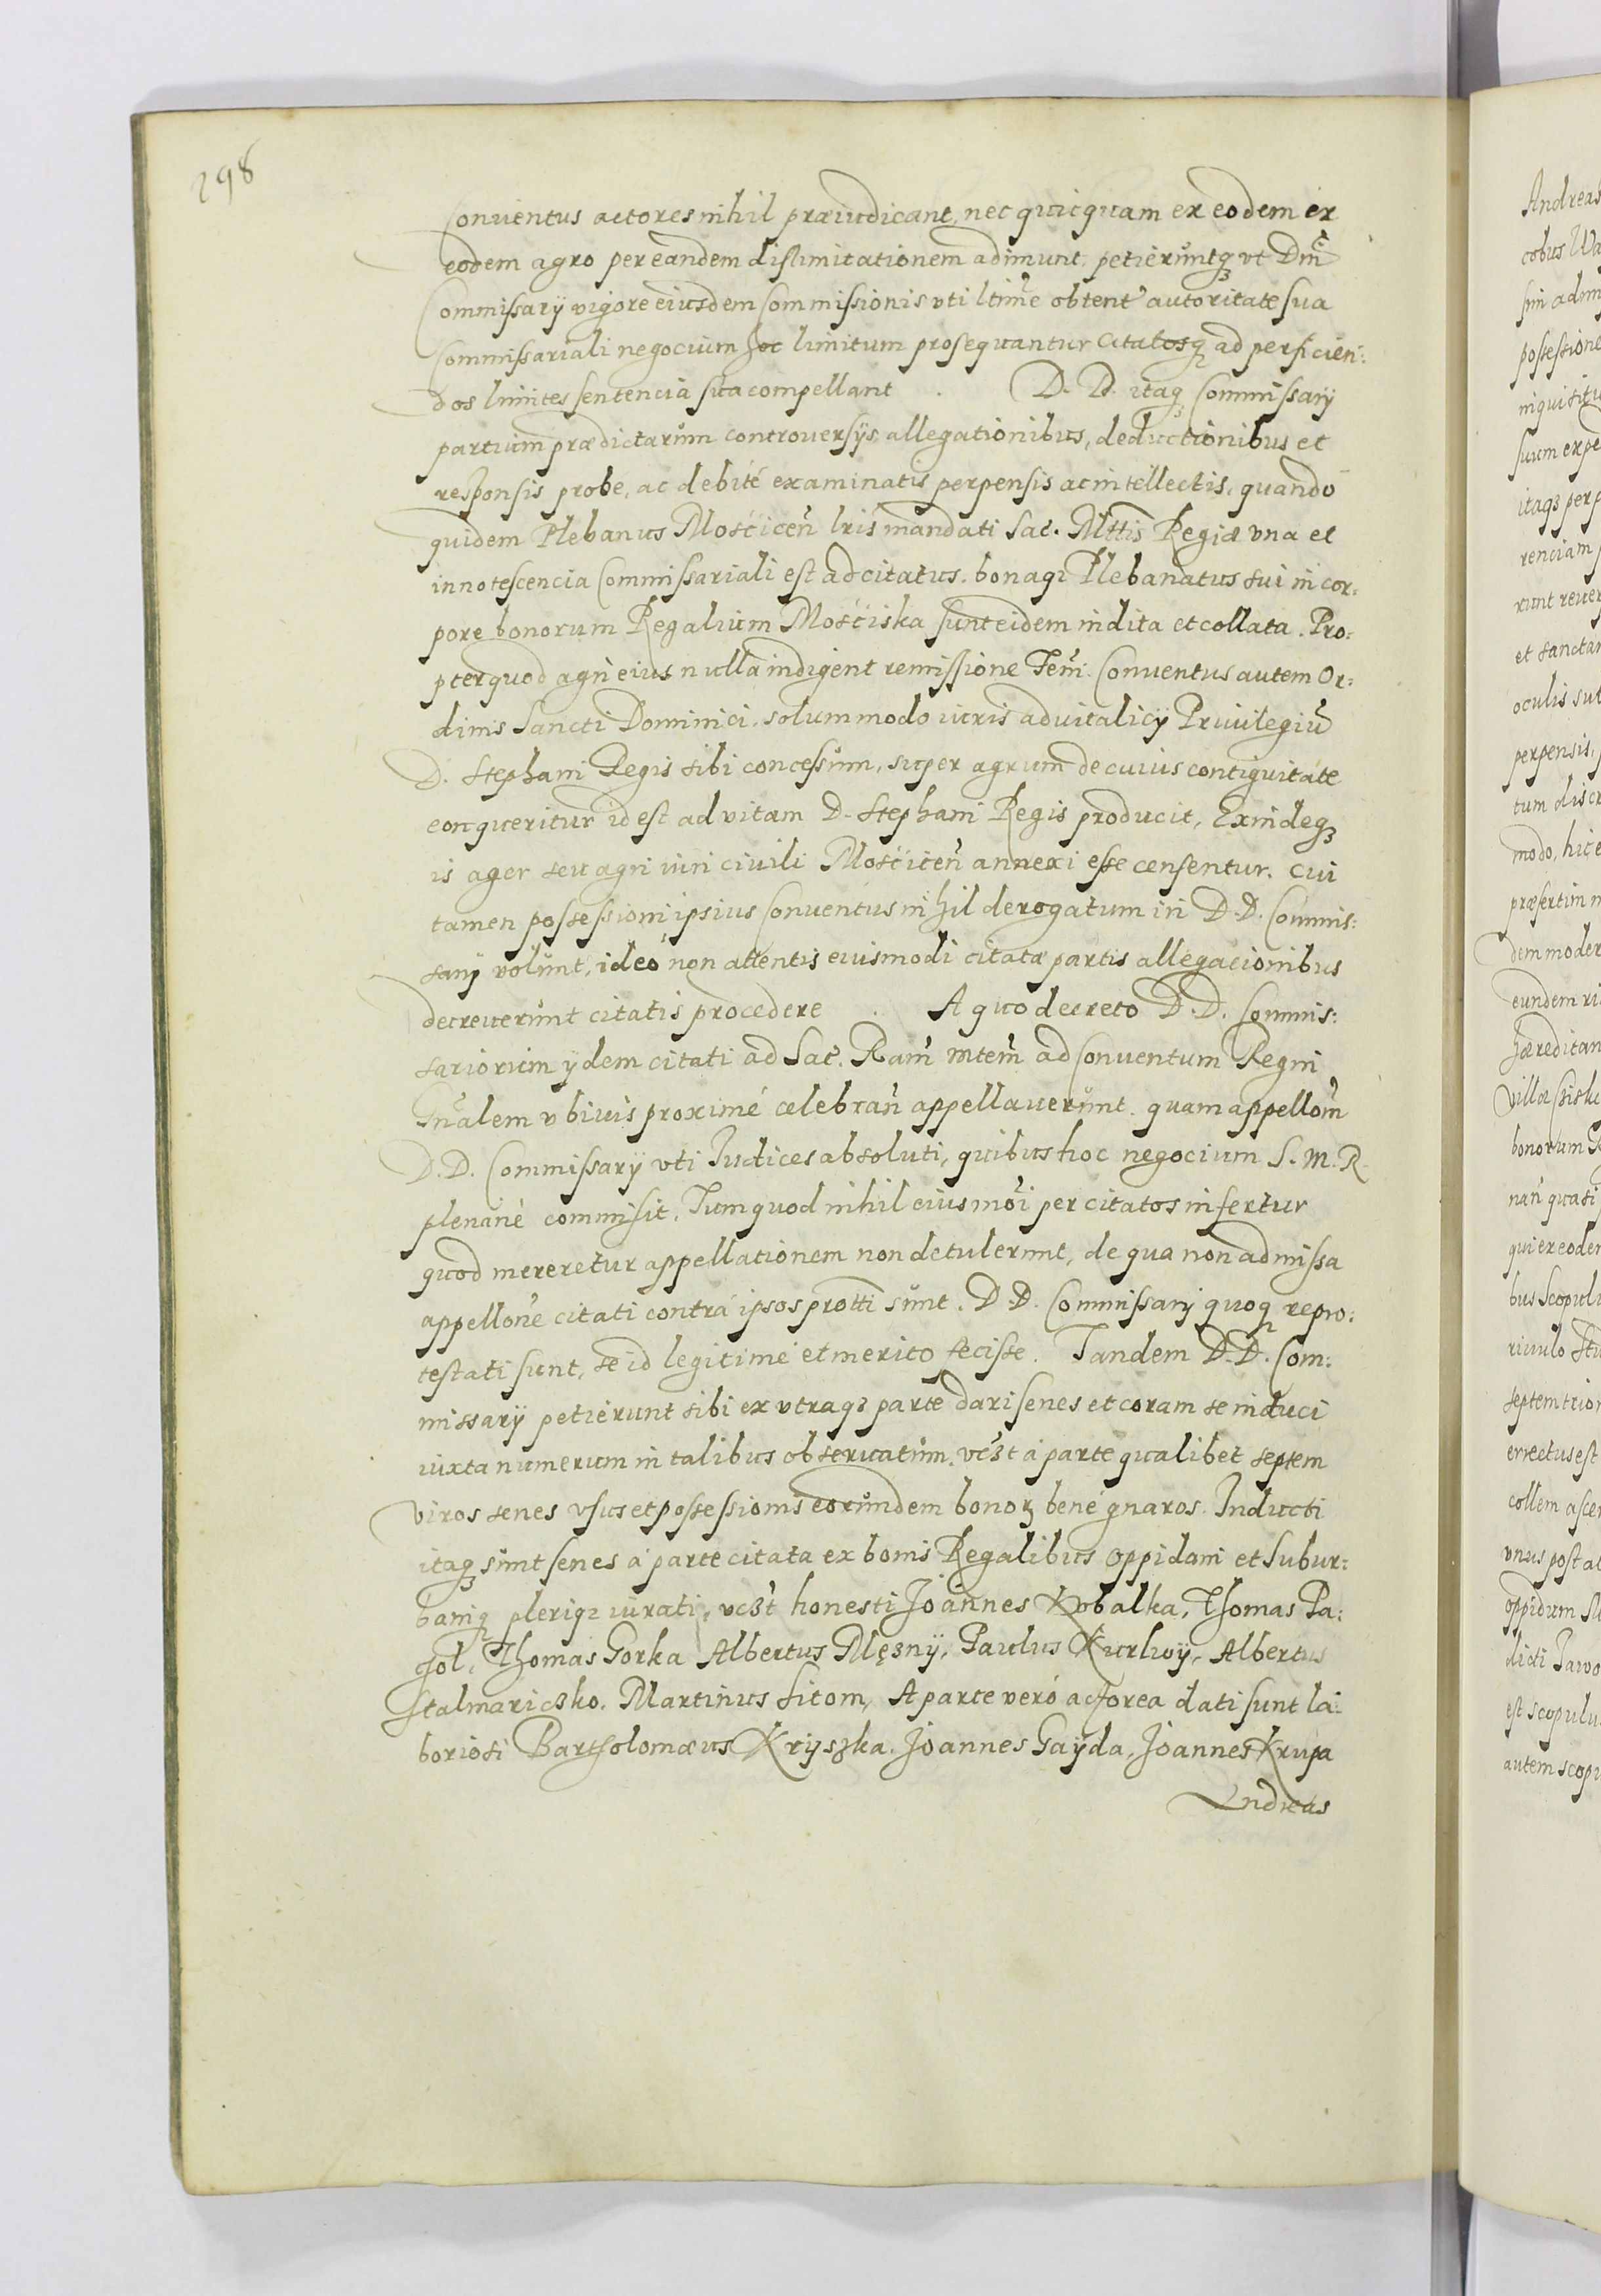 298
Conuentus actores nihil præiudicant, nec quicquam ex eodem ex
eodem agro per eandem dislimitationem adimunt, petierůntqȝ vt Dni
Commissarÿ vigore eiusdem Commissionis vti ltime obtent autoritate sua
Commissariali negocium hoc limitum prosequantur Citatosqȝ ad perficien:
dos limites sentencia sua compellant . D. D. itaqȝ Commissarÿ
partium prædictarům controuersÿs allegationibus, deductionibus et
responsis probe, ac debité examinatis perpensis ac intellectis, quando
quidem Plebanus Mościcen̄ lris mandati Sac. Mttis Regiæ vna et
innotescencia Commissariali est adcitatus. bonaqȝ Plebanatus sui in cor:
pore bonorum Regalium Mościska sunt eidem indita et collata. Pro:
pterquod agri eius nulla indigent remissione Tem. Conuentus autem Or:
dinis Sancti Dominici. solummodo iuris aduitalicÿ Priuilegiū
D. Stephani Regis sibi concessům, super agrum de cuius contiguitate
conqueritur id est ad vitam D. Stephani Regis producit, Exindeqȝ
is ager seu agri iuri ciuili Mościcen̄ annexi esse censentur. cui
tamen possessioni ipsius Conuentus nihil derogatum iri D.D. Commis:
sarÿ volůnt, ideò non attentis eiusmodi citatæ partis allegacionibus
decreuerůnt citatis procedere . A quo decreto D.D. Commis:
sariorum ÿdem citati ad Sac. Ram̄ mtem̄ ad Conuentum Regni
Gnalem vbiuis proximé celebran̄ appellauerůnt. quam appellom̄
D.D. Commissarÿ vti Iudices absoluti, quibus hoc negocium S. M. R.
plenarié commisit, Tum quod nihil eiusmoi per citatos infertur
quod mereretur appellationem non detulerunt, de qua non admissa
appellone citati contrá ipsos protti sůnt. D D. Commissarÿ quoqȝ repro:
testati sunt, se id legitimé et merito fecisse. Tandem D.D. Com:
missarÿ petierunt sibi ex vtraqȝ parte dari senes et coram se induci
iuxta numerum in talibus obseruatům. vczt á parte qualibet septem
viros senes vsus et possessionis eorůndem bonoȝ bené gnaros. Inducti
itaqȝ sůnt senes á parte citata ex bonis Regalibus Oppidani et Subur:
baniqȝ pleriqȝ iůrati, vczt honesti Joannes Kubalka, Thomas Pa:
chol, Thomas Gorka Albertus Mężnÿ, Paulus Kurlwÿ, Albertus
Stalmariczko. Martinus Sitom, A parte veró actorea dati sunt la:
boriosi Bartholomæus Kryszka. Joannes Gaÿda, Joannes Krupa
Andreas